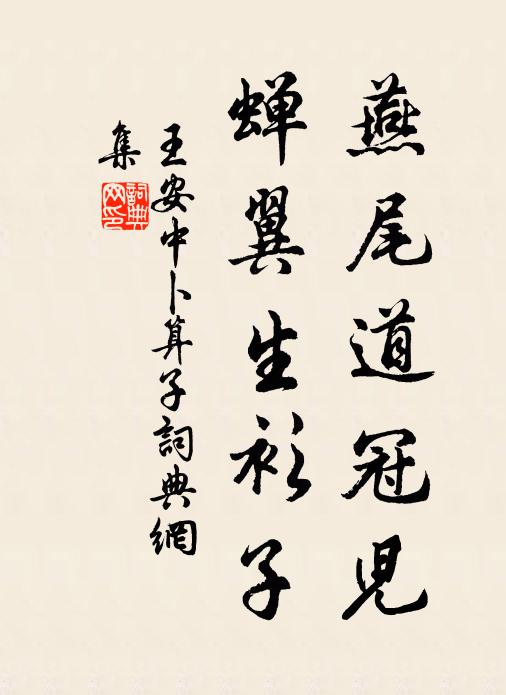 燕尾道冠兒
蟬翼生衫子
王安中卜算子詞典網
集
詞典網印